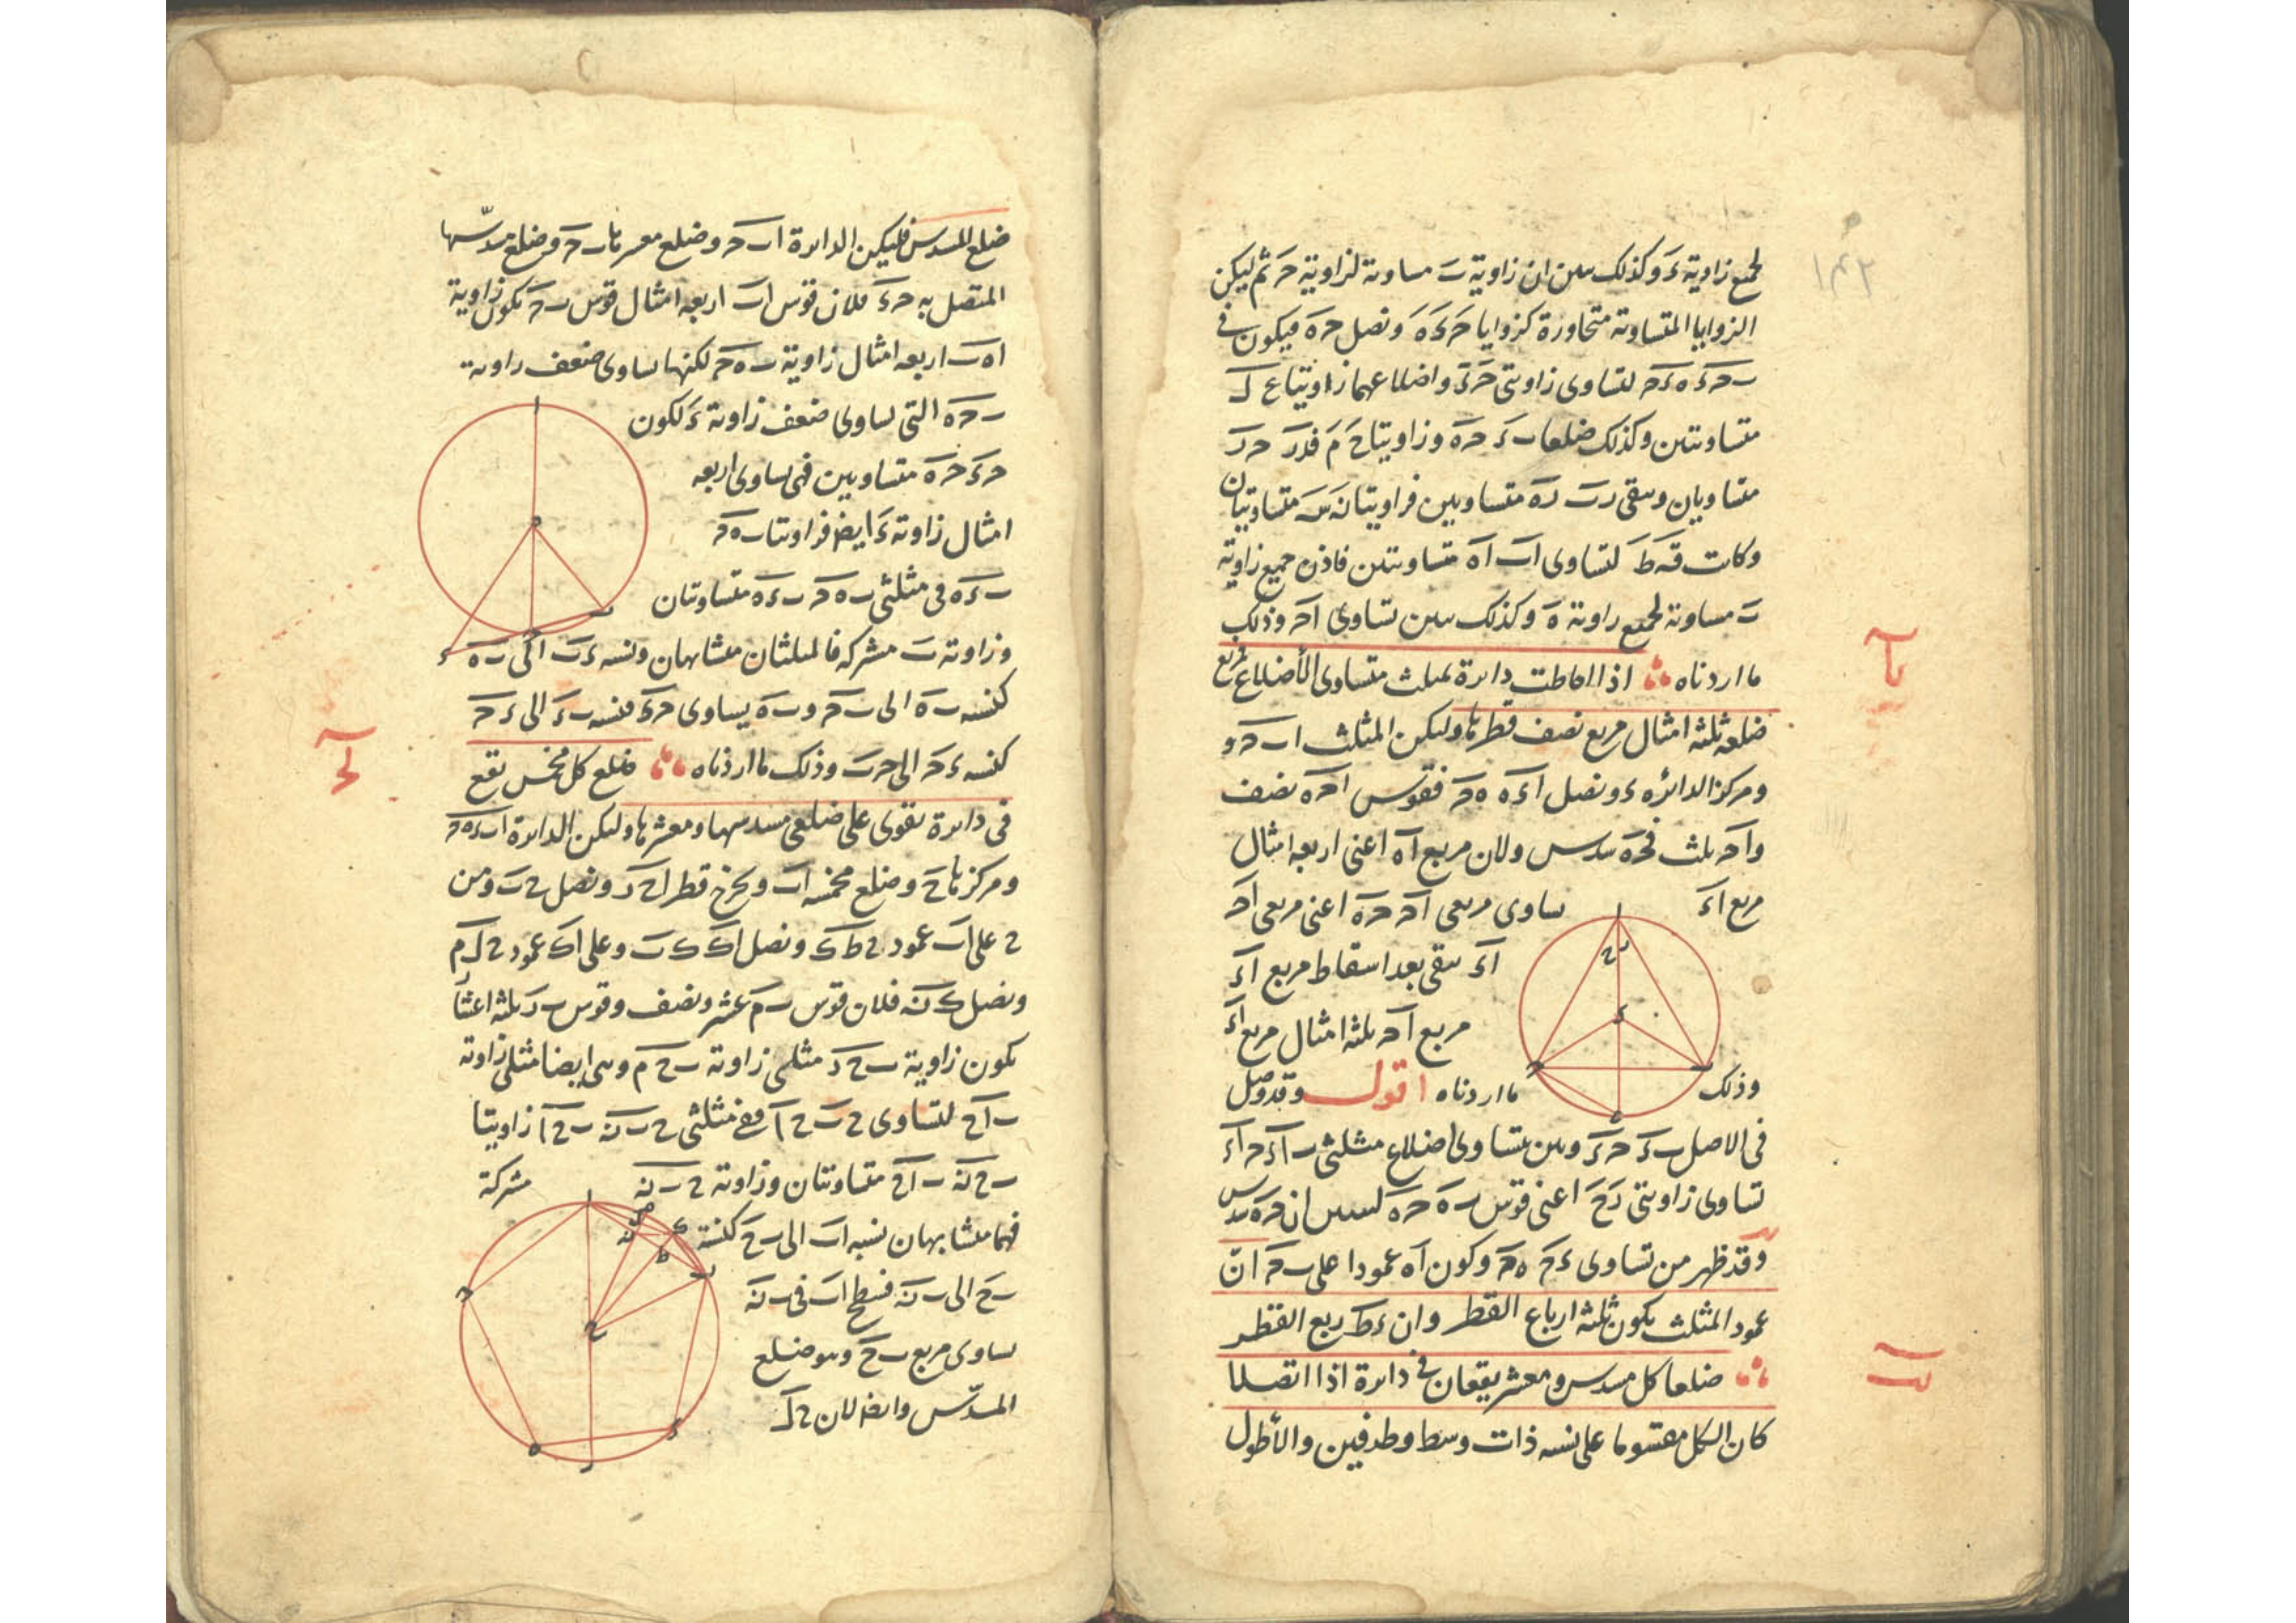 ١٤٢
لجميع زاوية ءَ وكذلك ىىىن ان زاوية بَ مساوىة لزاوية حَ ثم ليكن
الزوايا المتساوىة متحاورة كزوايا حَ ءَ هَ ونصل حه فيكون فى
ب ح ء ه ء ح لتساوى زاويتى حَ ءَ واضلاعهما زاويتا ع ك
متساوىتىن وكذلك ضلعا ب ء ح ه وزاويتا حَ مَ فلاَر ح ر
متساويان وىىقى رب ره متساوىىن فزاويتا نَ سَ متساويتان
وكانت قَ طَ لتساوى اب اه متساوىتىن فاذن جميع زاوية
بَ مساوىة لجميع زاوىة هَ وكذلك ىىىن تساوى احَ وذلك
ما اردناه اذا احاطت داىرة بمىلث متساوى الأضلاع فمربع
يا
ضلعه ثلثة امثال مربع نصف قطرها وليكن المثلث ا ب ح و
ومركز الدائره ء ونصل ا ء ه ه ح فقوس ا ح ه نصف
وا ح ىلث فح ه سدس ولان مربع اه اعنى اربعه امثال
مربع ا ء ىساوى مربعى ا ح ح ه اعنى مربعى ا ح
ا ء ىىقى بعد اسقاط مربع ا ء
مربع ا ح ىلثه امثال مربع ا ء
وذلك ما اردناه اقول وقد وصل
فى الاصل ب ء ح ء وىىن ىتساوى اضلاع مثلثى ب ا ء ح ا ء
تساوى زاويتى رَ حَ اعنى قوس ب ه ح ه لىىىىن ان ح ه سدس
وقد ظهر من تساوى ء ح ه ح وكون اه عمودا على ب ح انّ
عمود المثلث يكون ثلثة ارباع القطر وان ء ط ربع القطر
ضلعا كل مسدس ومعشر يقعان فى داىرة اذا اتصلا
يب
كان الكل مقسوما على نسبه ذات وسط وطرفين والأطول
ضلع للمسدس فليكن الداىرة ا ب ح وضلع معشرها ب ح وضلع مسدّسها
المتصل به ح ء فلان قوس اب اربعه امثال قوس ب ح يكون زاوية
اه ب اربعه امثال زاوية ب ه ح لكنها ىساوى ضعف زاوىة
ب ح ه التى ىساوى ضعف زاوىة ءَ لكون
ح ء ح ه متساويين فهى ىساوى اربعه
امثال زاوىة ءَ ايض فزاوىتا ب ه ح
ب ء ه فى مثلثى ب ه ح ب ء ه متساوىتان
وزاوىة بَ مشتركه فالمثلثان متشابهان ونسبه ء ب الى ب ه
كنسبه ب ه الى ب ح و ب ه يساوى ح ء فنسبه ب ء الى ء ح
كنسبه ء ح الى ح ب وذلك ما اردناه ضلع كل مخمس يقع
يج
فى داىرة يقوى على ضلعى مسدسها ومعشرها وليكن الداىرة ا ب ء ه ح
ومركزها ح وضلع مخمسه اب ويخرج قطر ا ح ر ونصل ح ب ومن
ح على اب عمود ح ط ك ونصل ا ك ك ب وعلى ا ك عمود ح ل م
ونصل ك ن فلان قوس ب م عشر ونصف وقوس ب ر ىلثه اعشار
يكون زاوية ب ح ر مثلى زاوىة ب ح م وهى ايضا مثلى زاوىة
ب ا ح لتساوى ح ب ح ا ففى مثلثى ح ب ن ب ح ا زاويتا
ب ح ن ب ا ح متساوىتان وزاوىة ح ب ن مشركة
فهما متشابهان نسبه اب الى ب ح كنسبة
ب ح الى ب ن فسطح اب فى ب ن
ىساوى مربع ب ح وهو ضلع
المسدّس وايضا لان ح ل